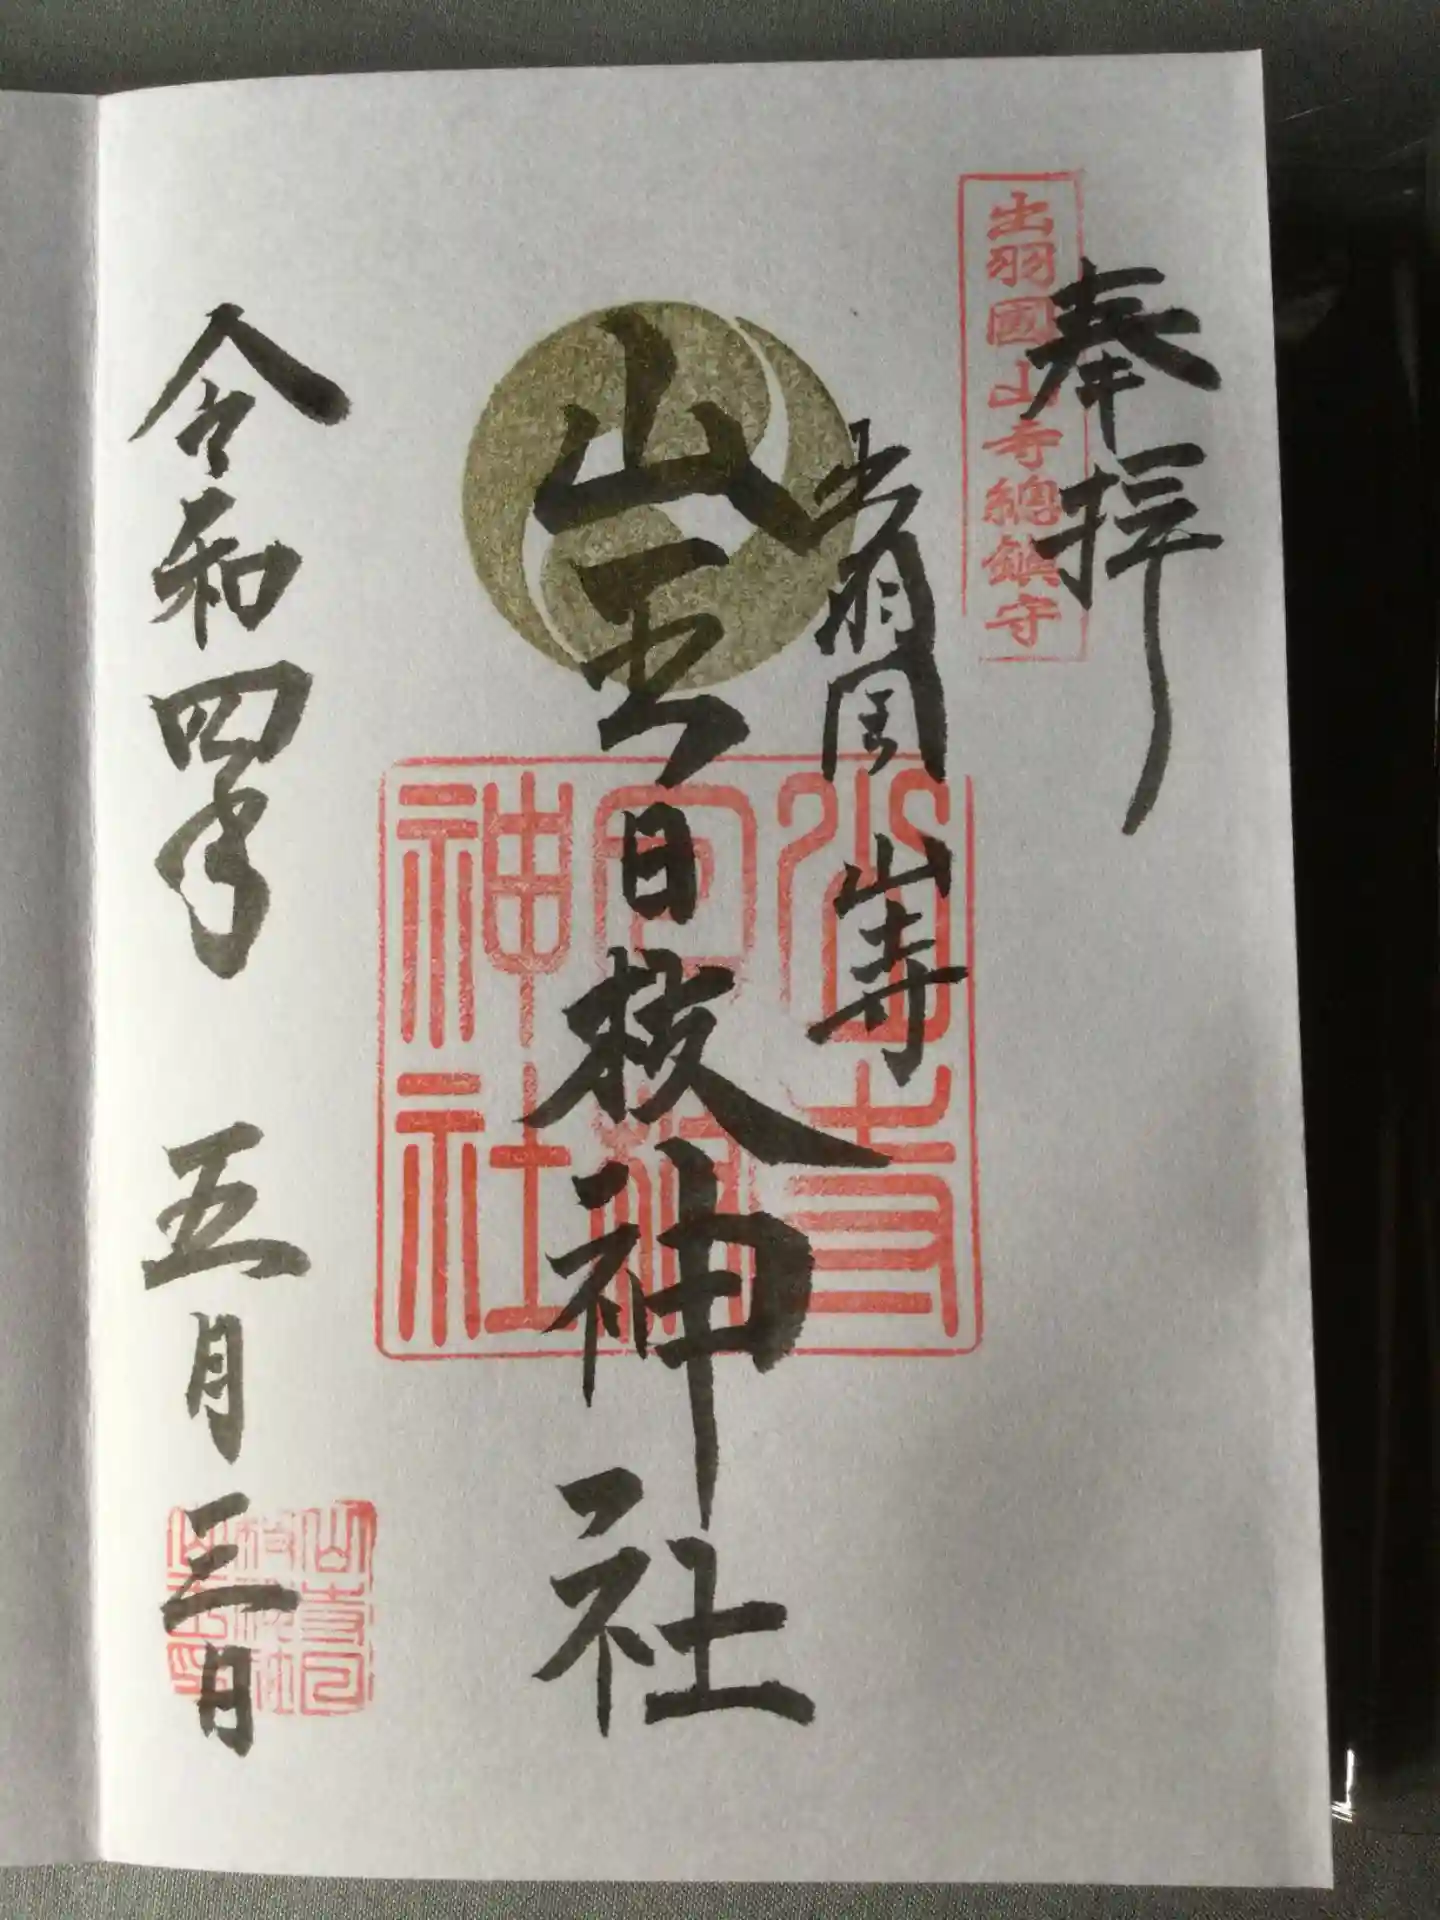 奉拝
出羽國山寺總鎮守
出羽国 山寺
山王日枝神社
山寺
日枝
神社
令和四年 五月三日